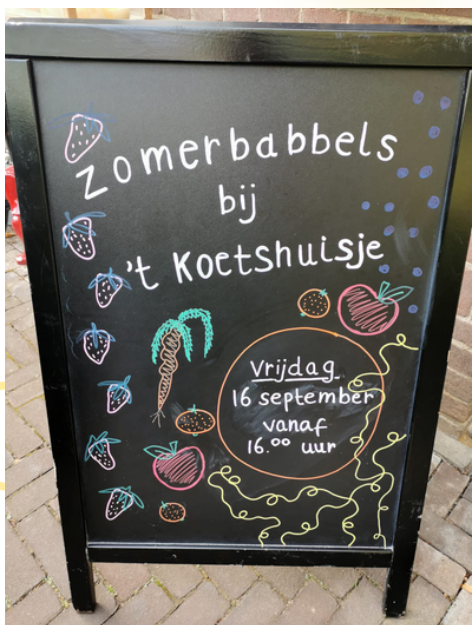 Zomerbabbels
bij
't Koetshuisje
Vrijdag
16 september
vanaf
16.00 uur